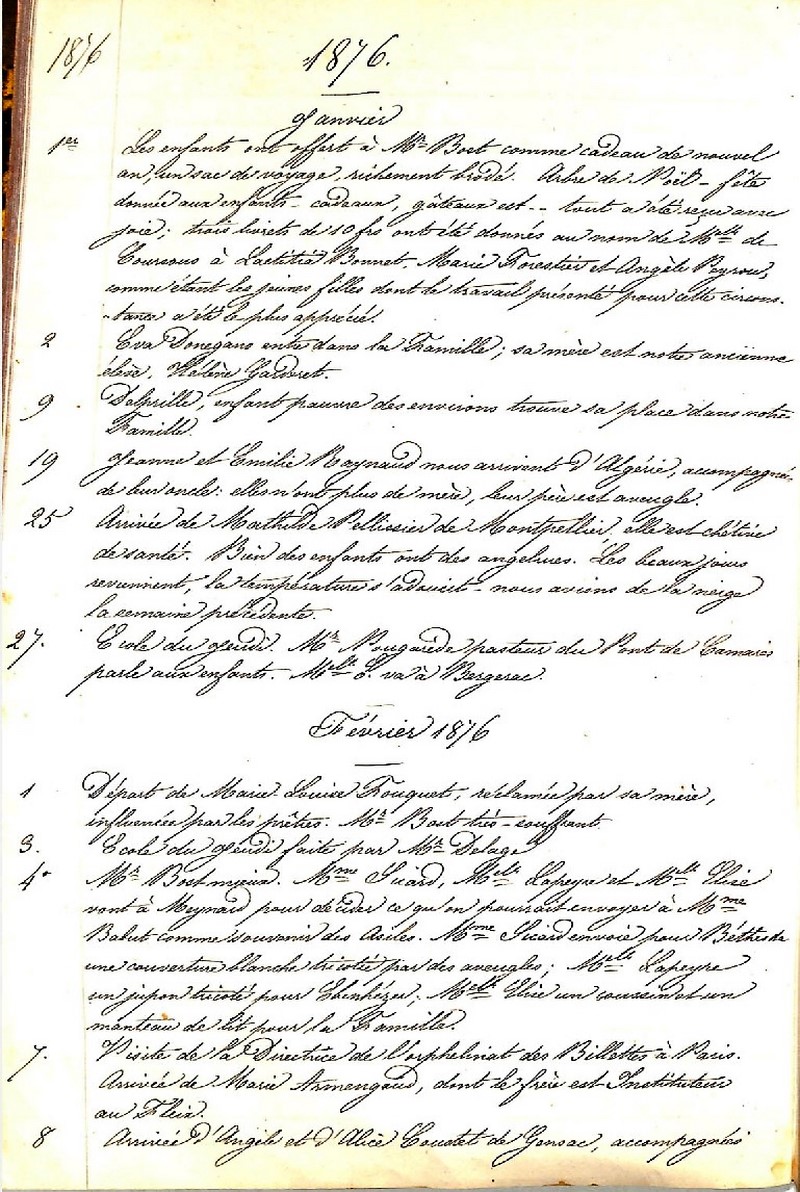 1876
1876.
Janvier
1er Les enfants ont offert à Mr Bost comme cadeau de nouvel
an, un sac de voyage, richement brodé. Arbre de Noël - fête
donnée aux enfants - cadeaux, gâteaux est -- tout a été reçu avec
joie; trois livrets de 10 frs ont été donnés au nom de Melle de
à Laetitia Bonnet, Marie Forestier et Angèle Peyrou,
comme étant les jeunes filles dont le travail présenté pour cette circons-
-tance a été le plus apprécié.
2 Eva Donegano entre dans la Famille; sa mère est notre ancienne
élève, Hélène Garderet.
9 Delprille, enfant pauvre des environs trouve sa place dans notre
Famille.
19 Jeanne et Emilie Raynaud nous arrivent d'Algérie, accompagnées
de leur oncle: elles n'ont plus de mère, leur père est aveugle.
25 Arrivée de Mathilde Pellissier de Montpellier, elle est chétive
de santé. Bien des enfants ont des angelures. Les beaux jours
reviennent, la température s'adoucit - nous avions de la neige
la semaine précédente.
27. Ecole du Jeudi. Mr Nougarède pasteur du Pont de Camarès
parle aux enfants. Melle S. va à Bergerac.
Février 1876
1 Départ de Marie Louise Fouquet, réclamée par sa mère,
influencée par les prêtres. Mr Bost très-souffrant.
3. Ecole du Jeudi faite par Mr Delage
4. Mr Bost mieux. Mme Sicard, Melle Lapeyre et Melle Elise
vont à Meynard pour décider ce qu'on pourrait envoyer à Mme
Babut comme souvenir des Asiles. Mme Sicard envoie pour Béthesda
une couverture blanche tricotée par des aveugles; Melle Lapeyre
un jupon tricoté pour Ebenhézer; Melle Elise un coussin et un
manteau de lit pour la Famille.
7. Visite de la Directrice de l'orphelinat des Billettes à Paris.
Arrivée de Marie Armengaud, dont le frère est Instituteur
au Fleix.
8 Arrivée d'Angèle et d'Alice Coustet de Gensac, accompagnées